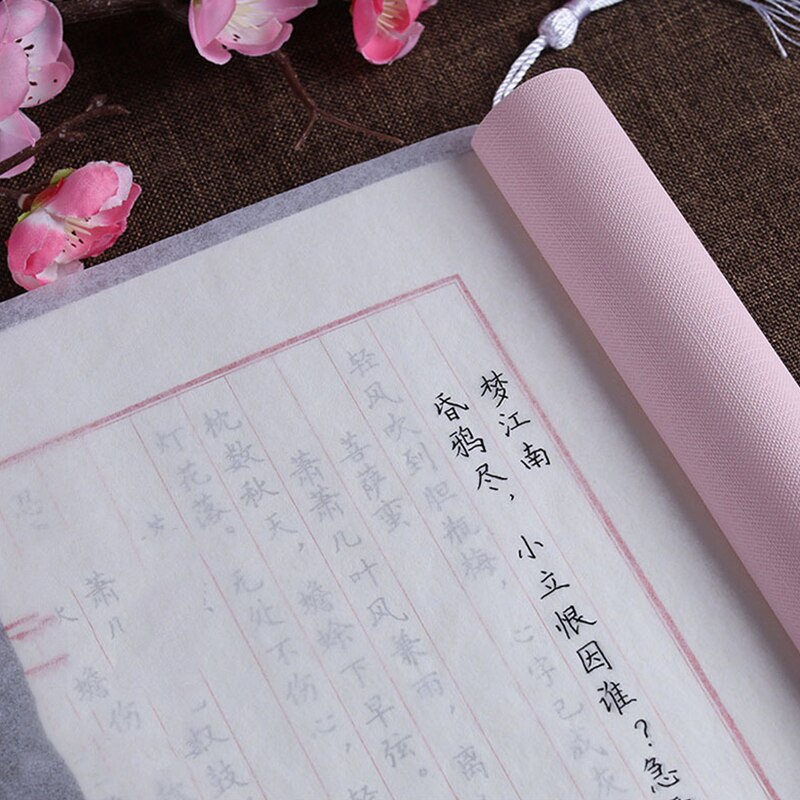 梦江南
昏鸦尽，小立恨因谁？急
轻风吹到胆瓶梅，心字已成灰
菩萨蛮
萧萧几叶风兼雨，离
枕数秋天，蟾蜍下早弦。
灯花落。无处不伤心，